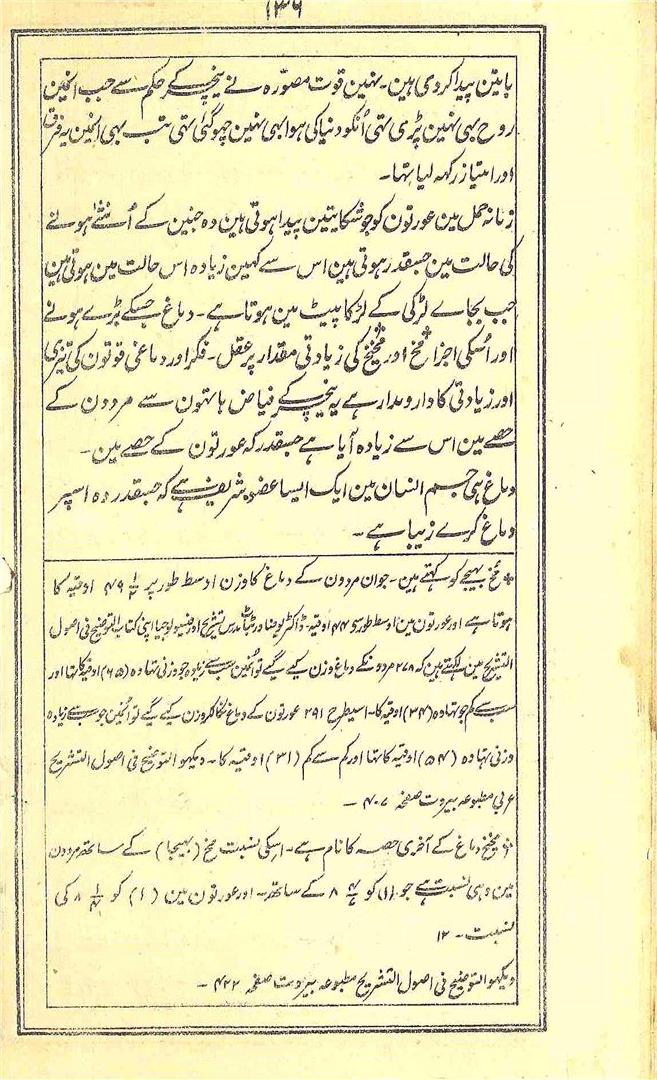 ۱۳۶
باتین پیدا کر دی ہین۔ نہین قوت مصوّرہ نے نیچر کے حکم سے جب انمین
روح بھی نہین پڑی تھی اُنکو دنیا کی ہوا بھی نہین چھو گئی تھی تب بھی انمین یہ فرق
اور امتیاز رکھہ لیا تھا۔
زمانہ حمل مین عورتون کو جو شکایتین پیدا ہوتی ہین وہ جنین کے اُنثے ہونے
کی حالت مین جسقدر ہوتی ہین اس سے کہین زیادہ اس حالت مین ہوتی ہین
جب بجاے لڑکی کے لڑکا پیٹ مین ہوتا ہے۔ دماغ جسکے بڑے ہونے
اور اُسکی اجزا مخ* اور مخیخ* کی زیادتی مقدار پر عقل۔ فکر اور دماغی قوتون کی تیزی
اور زیادتی کا دارومدار ہے یہ نیچر کے فیاض ہاتھون سے مردون کے
حصے مین اس سے زیادہ آیا ہے جسقدر کہ عورتون کے حصے مین۔
دماغ ہی جسم انسان مین ایک ایسا عضو شریف ہے کہ جسقدر وہ اسپر
دماغ کرے زیبا ہے۔
* مخ بھیجے کو کہتے ہین۔ جوان مردون کے دماغ کا وزن اوسط طور پر ½ ۴۹ اوقیہ کا
ہوتا ہے اور عورتون مین اوسط طور سو ۴۴ اوقیہ ڈاکٹر یوحنا ورتبات مدرس تشریح اور فسیولوجیا اپنی کتاب التوضیح فی اصول
التشریح مین لکھتے ہین کہ ۲۷۸ مردونکے دماغ وزن کیے گیے تو اُنمین سب سے زیادہ جو وزنی تھا وہ (۶۵) اوقیہ کا تھا اور
سب سے کم جو تھا وہ (۳۴) اوقیہ کا۔ اسیطرح ۲۹۱ عورتون کے دماغ نکالکر وزن کیے گیے تو اُنمین جو سب سے زیادہ
وزنی تھا وہ (۵۴) اوقیہ کا تھا اور کم سے کم (۳۱) اوقیہ کا۔ دیکھو التوضیح فی اصول التشریح
عربی مطبوعہ بیروت صفحہ ۴۰۷ ۔
* مخیخ دماغ کے آخری حصہ کا نام ہے۔ اسکی نسبت مخ (بھیجا) کے ساتھ مردون
مین وہی نسبت ہے جو (۱) کو ۸ کے ساتھ۔ اور عورتون مین (۱) کو ۸ کی
نسبت۔ ۱۲
دیکھو التوضیح فی اصول التشریح مطبوعہ بیروت صفحہ ۴۲۲ ۔